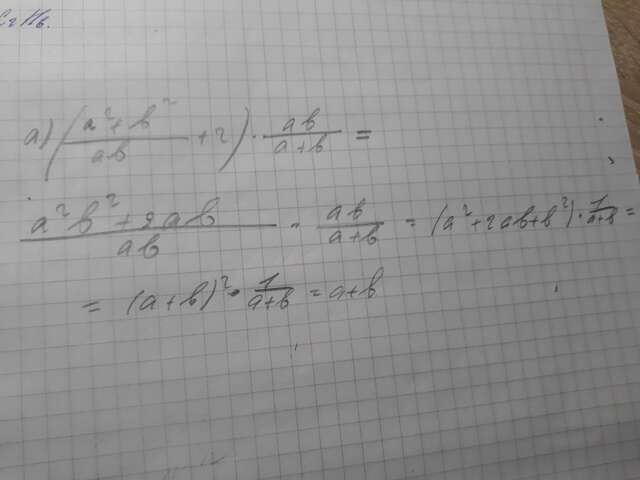 а) (a² + b² / ab + 2) · ab / a + b =
a² b² + 2ab / ab · ab / a + b = (a² + 2ab + b²) · 1 / a + b =
= (a + b)² · 1 / a + b = a + b